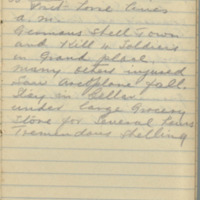 Post Love lines
a.m.
Germans Shell Town
and Kill 4 Soldiers
in Grand place.
Many others injured
Saw Aeroplane fall.
Stay in Cellar
under large Grocery
Store for Several hours
Tremendous Shelling